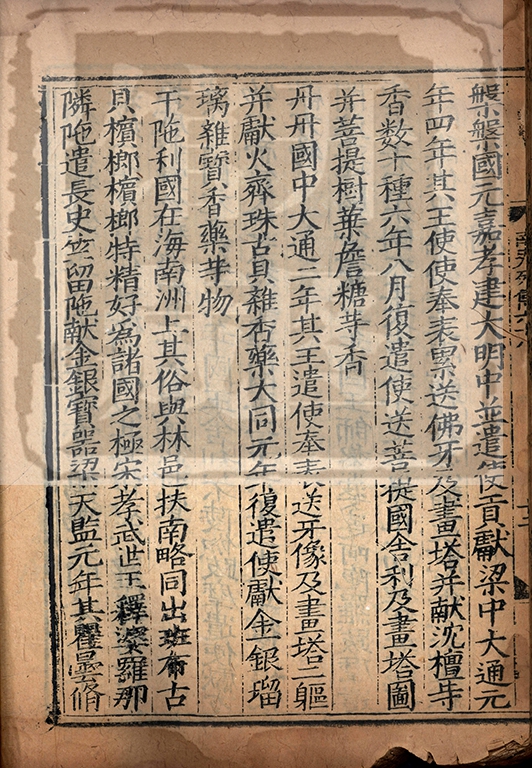 槃槃國元嘉孝建大明中並遣使貢獻梁中大通元
年四年其王使使奉表累送佛牙及畫塔并献沈檀等
香数十種六年八月復遣使送菩提國舎利及畫塔圖
并菩提樹葉詹糖等香
丹丹國中大通二年其王遣使奉表送牙像及畫塔二軀
并獻火齊珠古貝雜香藥大同元年復遣使獻金銀瑠
璃雜寶香藥等物
干陁利國在海南洲上其俗與林邑扶南略同出班布古
貝檳榔檳榔特精好為諸國之極宋孝武世王釋婆羅那
隣陁遣長史竺留陁献金銀寶器梁天監元年其瞿曇脩